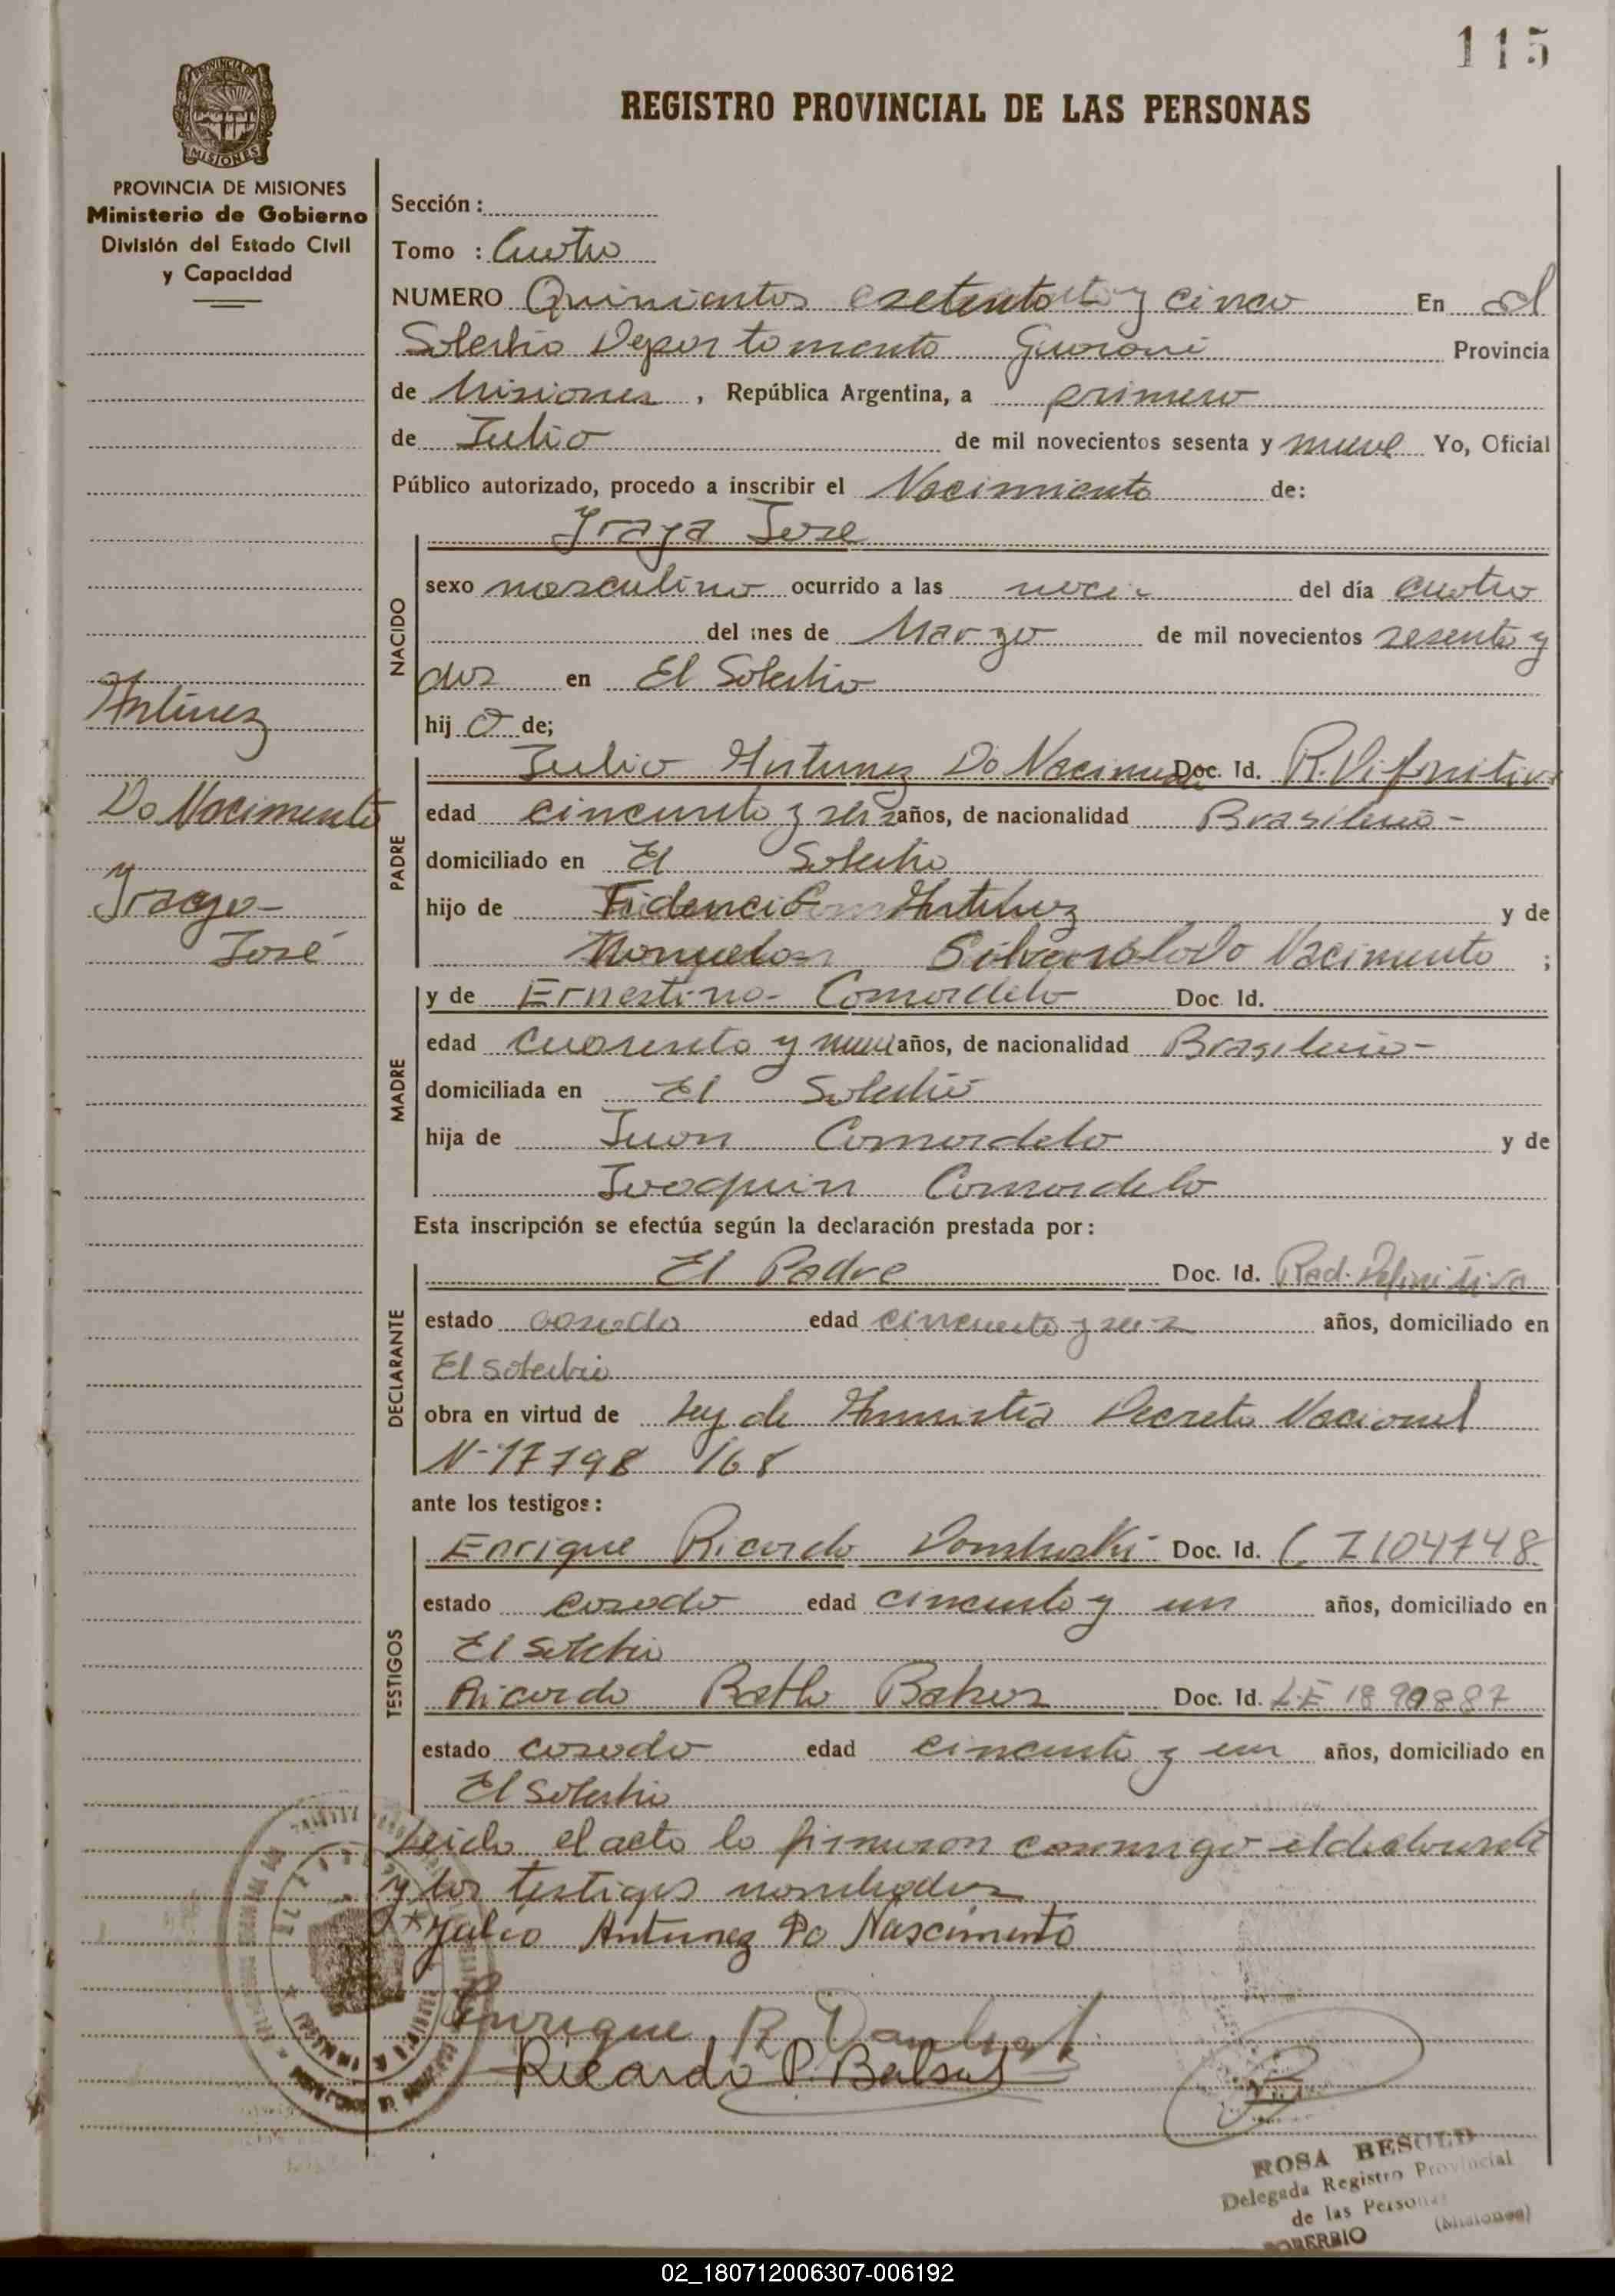 115
PROVINCIA DE
MISIONES
REGISTRO PROVINCIAL DE LAS PERSONAS
PROVINCIA DE MISIONES
Ministerio de Gobierno
División del Estado Civil
y Capacidad
Sección :
Tomo : Cuatro
NUMERO Quinientos setenta y cinco En El
Soberbio Departamento Guarani Provincia
de Misiones , República Argentina, a primero
de Julio de mil novecientos sesenta y nueve Yo, Oficial
Público autorizado, procedo a inscribir el Nacimiento de:
Yraya Jose
NACIDO
sexo masculino ocurrido a las del día cuatro
del mes de Marzo de mil novecientos sesenta y
dos en El Soberbio
hij o de;
Antunez
Do Nacimento
Yraya
José
PADRE
Julio Antunez Do Nacimento Doc. Id. R. Difinitiva
edad cincuenta y seis años, de nacionalidad Brasileña -
domiciliado en El Soberbio
hijo de Fidencio Antunez y de
Manuela Silva Do Nacimento ;
MADRE
y de Ernestina Camardelo Doc. Id.
edad cuarenta y nueve años, de nacionalidad Brasileña -
domiciliada en El Soberbio
hija de Juan Camardelo y de
Joaquin Camardelo
Esta inscripción se efectúa según la declaración prestada por :
DECLARANTE
El Padre Doc. Id. Rad. Definitiva
estado casado edad cincuenta y seis años, domiciliado en
El Soberbio
obra en virtud de Ley de Amnistia Decreto Nacional
N- 17798 /68
ante los testigos :
TESTIGOS
Enrique Ricardo Dombroski Doc. Id. C I 104748
estado casado edad cincuenta y un años, domiciliado en
El Soberbio
Ricardo Doc. Id. L.E 1890887
estado casado edad cincuenta y un años, domiciliado en
El Soberbio
Leida el acta la firmaron conmigo el declarante
y los testigos nombrados
Julio Antunez Do Nascimento
Enrique R.
Ricardo P.
ROSA BESOLD
Delegada Registro Provincial
de las Personas
SOBERBIO (Misiones)
02_180712006307-006192